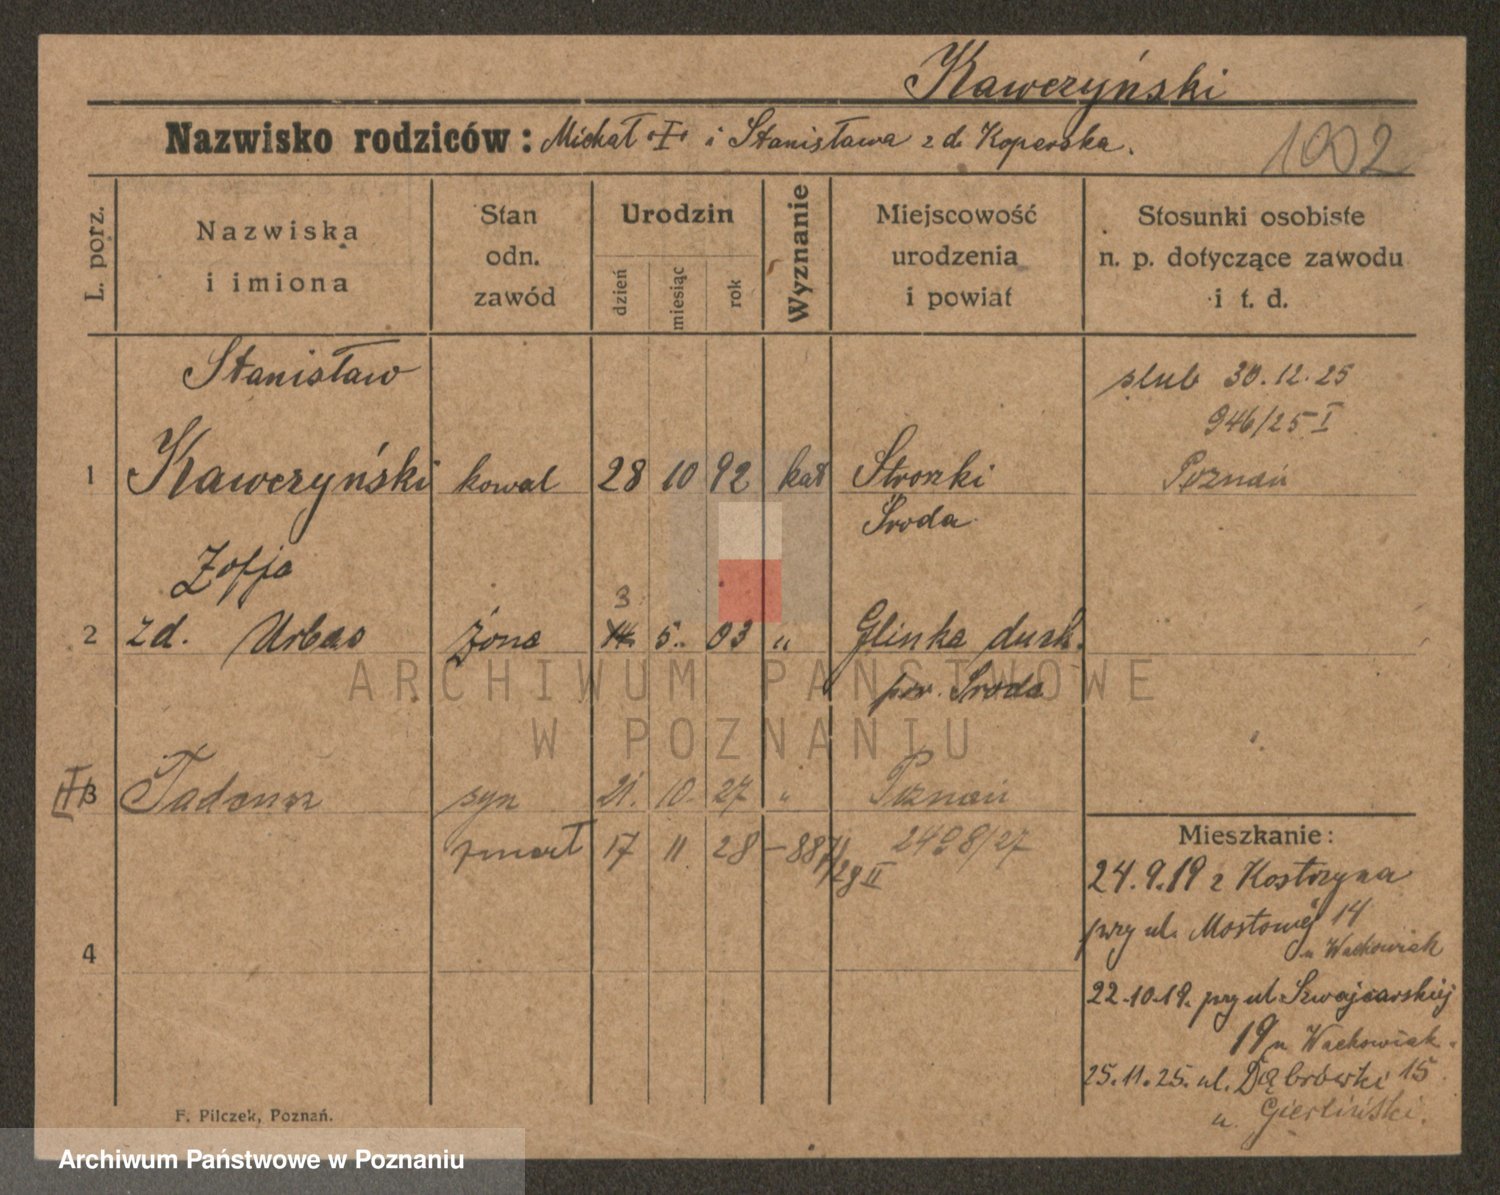 Kawczyński
Nazwisko rodziców: Michał i Stanisława z d. Koperska.
1002
L. porz.
Nazwiska
i imiona
Stan
odn.
zawód
Urodzin
dzień
miesiąc
rok
Wyznanie
Miejscowość
urodzenia
i powiat
Stosunki osobiste
n. p. dotyczące zawodu
i t. d.
Stanisław
ślub 30.12.25
946/25 I
1 Kawczyński kowal 28 10 92 kat Stroszki Poznań
Środa
Zofja
3
2 zd. Urbas żona 5. 03 " Glinka duch.
pow. Środa
ARCHIWUM PAŃSTWOWE
W POZNANIU
3 Tadeusz syn 21. 10. 27 " Poznań
zmarł 17 11 28 – 887/ 2498/27
II
4
Mieszkanie:
24.9.19 z Kostrzyna
przy ul. Mostowej 14
u Wackowiak
22.10.19. przy ul. Szwajcarskiej
19 u Wackowiak.
25.11.25. ul. Dąbrówki 15
u. Gierliński.
F. Pilczek, Poznań.
Archiwum Państwowe w Poznaniu